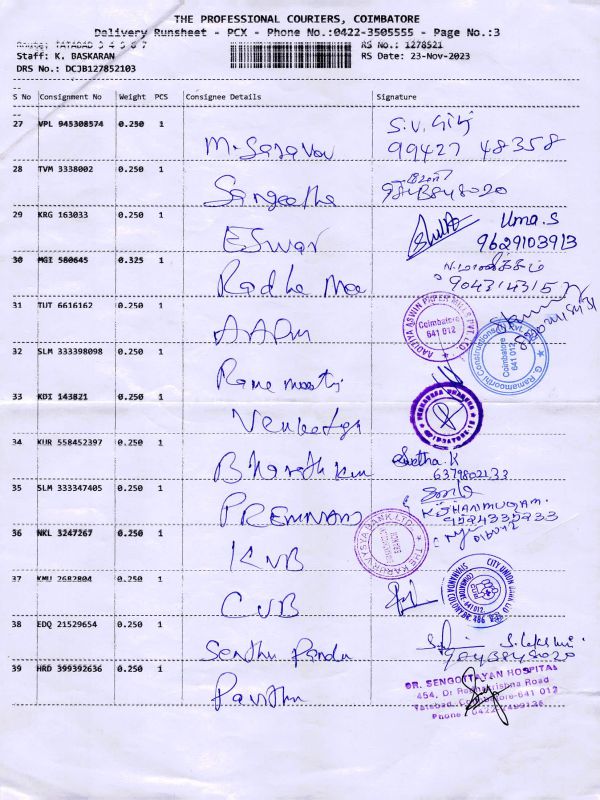 THE PROFESSIONAL COURIERS, COIMBATORE
Delivery Runsheet - PCX - Phone No.:0422-3505555 - Page No.:3
Route: TATABAD 3 4 5 6 7 RS No.: 1278521
Staff: K. BASKARAN RS Date: 23-Nov-2023
DRS No.: DCJB127852103
S No Consignment No Weight PCS Consignee Details Signature
27 VPL 945308574 0.250 1
M. Saravan 99427 48358
28 TVM 3338002 0.250 1
Sangeetha
29 KRG 163033 0.250 1 Uma.S
ESwar 9629103913
30 MGI 580645 0.325 1
Radhe Mee 9043143157
31 TUT 6616162 0.250 1
AAPM AADITYA ASWIN PAPER MILLS PVT. LTD. Coimbatore 641 012
32 SLM 333398098 0.250 1 G. Ramamoorthi Constructions (I) Pvt. Ltd. Coimbatore 641 012
Rame moorthy
33 KDI 143821 0.250 1
Venkatesh
34 KUR 558452397 0.250 1 Swetha.K
Bharath kum 6379802133
35 SLM 333347405 0.250 1
PREMNAND K. SHANMUGAM.
36 NKL 3247267 0.250 1
KVB THE KARUR VYSYA BANK LTD.
37 KMU 2682804 0.250 1
CUB CITY UNION BANK LTD
38 EDQ 21529654 0.250 1 S. Lakshmi
Senthu Pandu
39 HRD 399392636 0.250 1 DR. SENGOTTAYAN HOSPITAL
Pavithu 454, Dr. Radhakrishna Road
Tatabad, Coimbatore-641 012
Phone : 0422